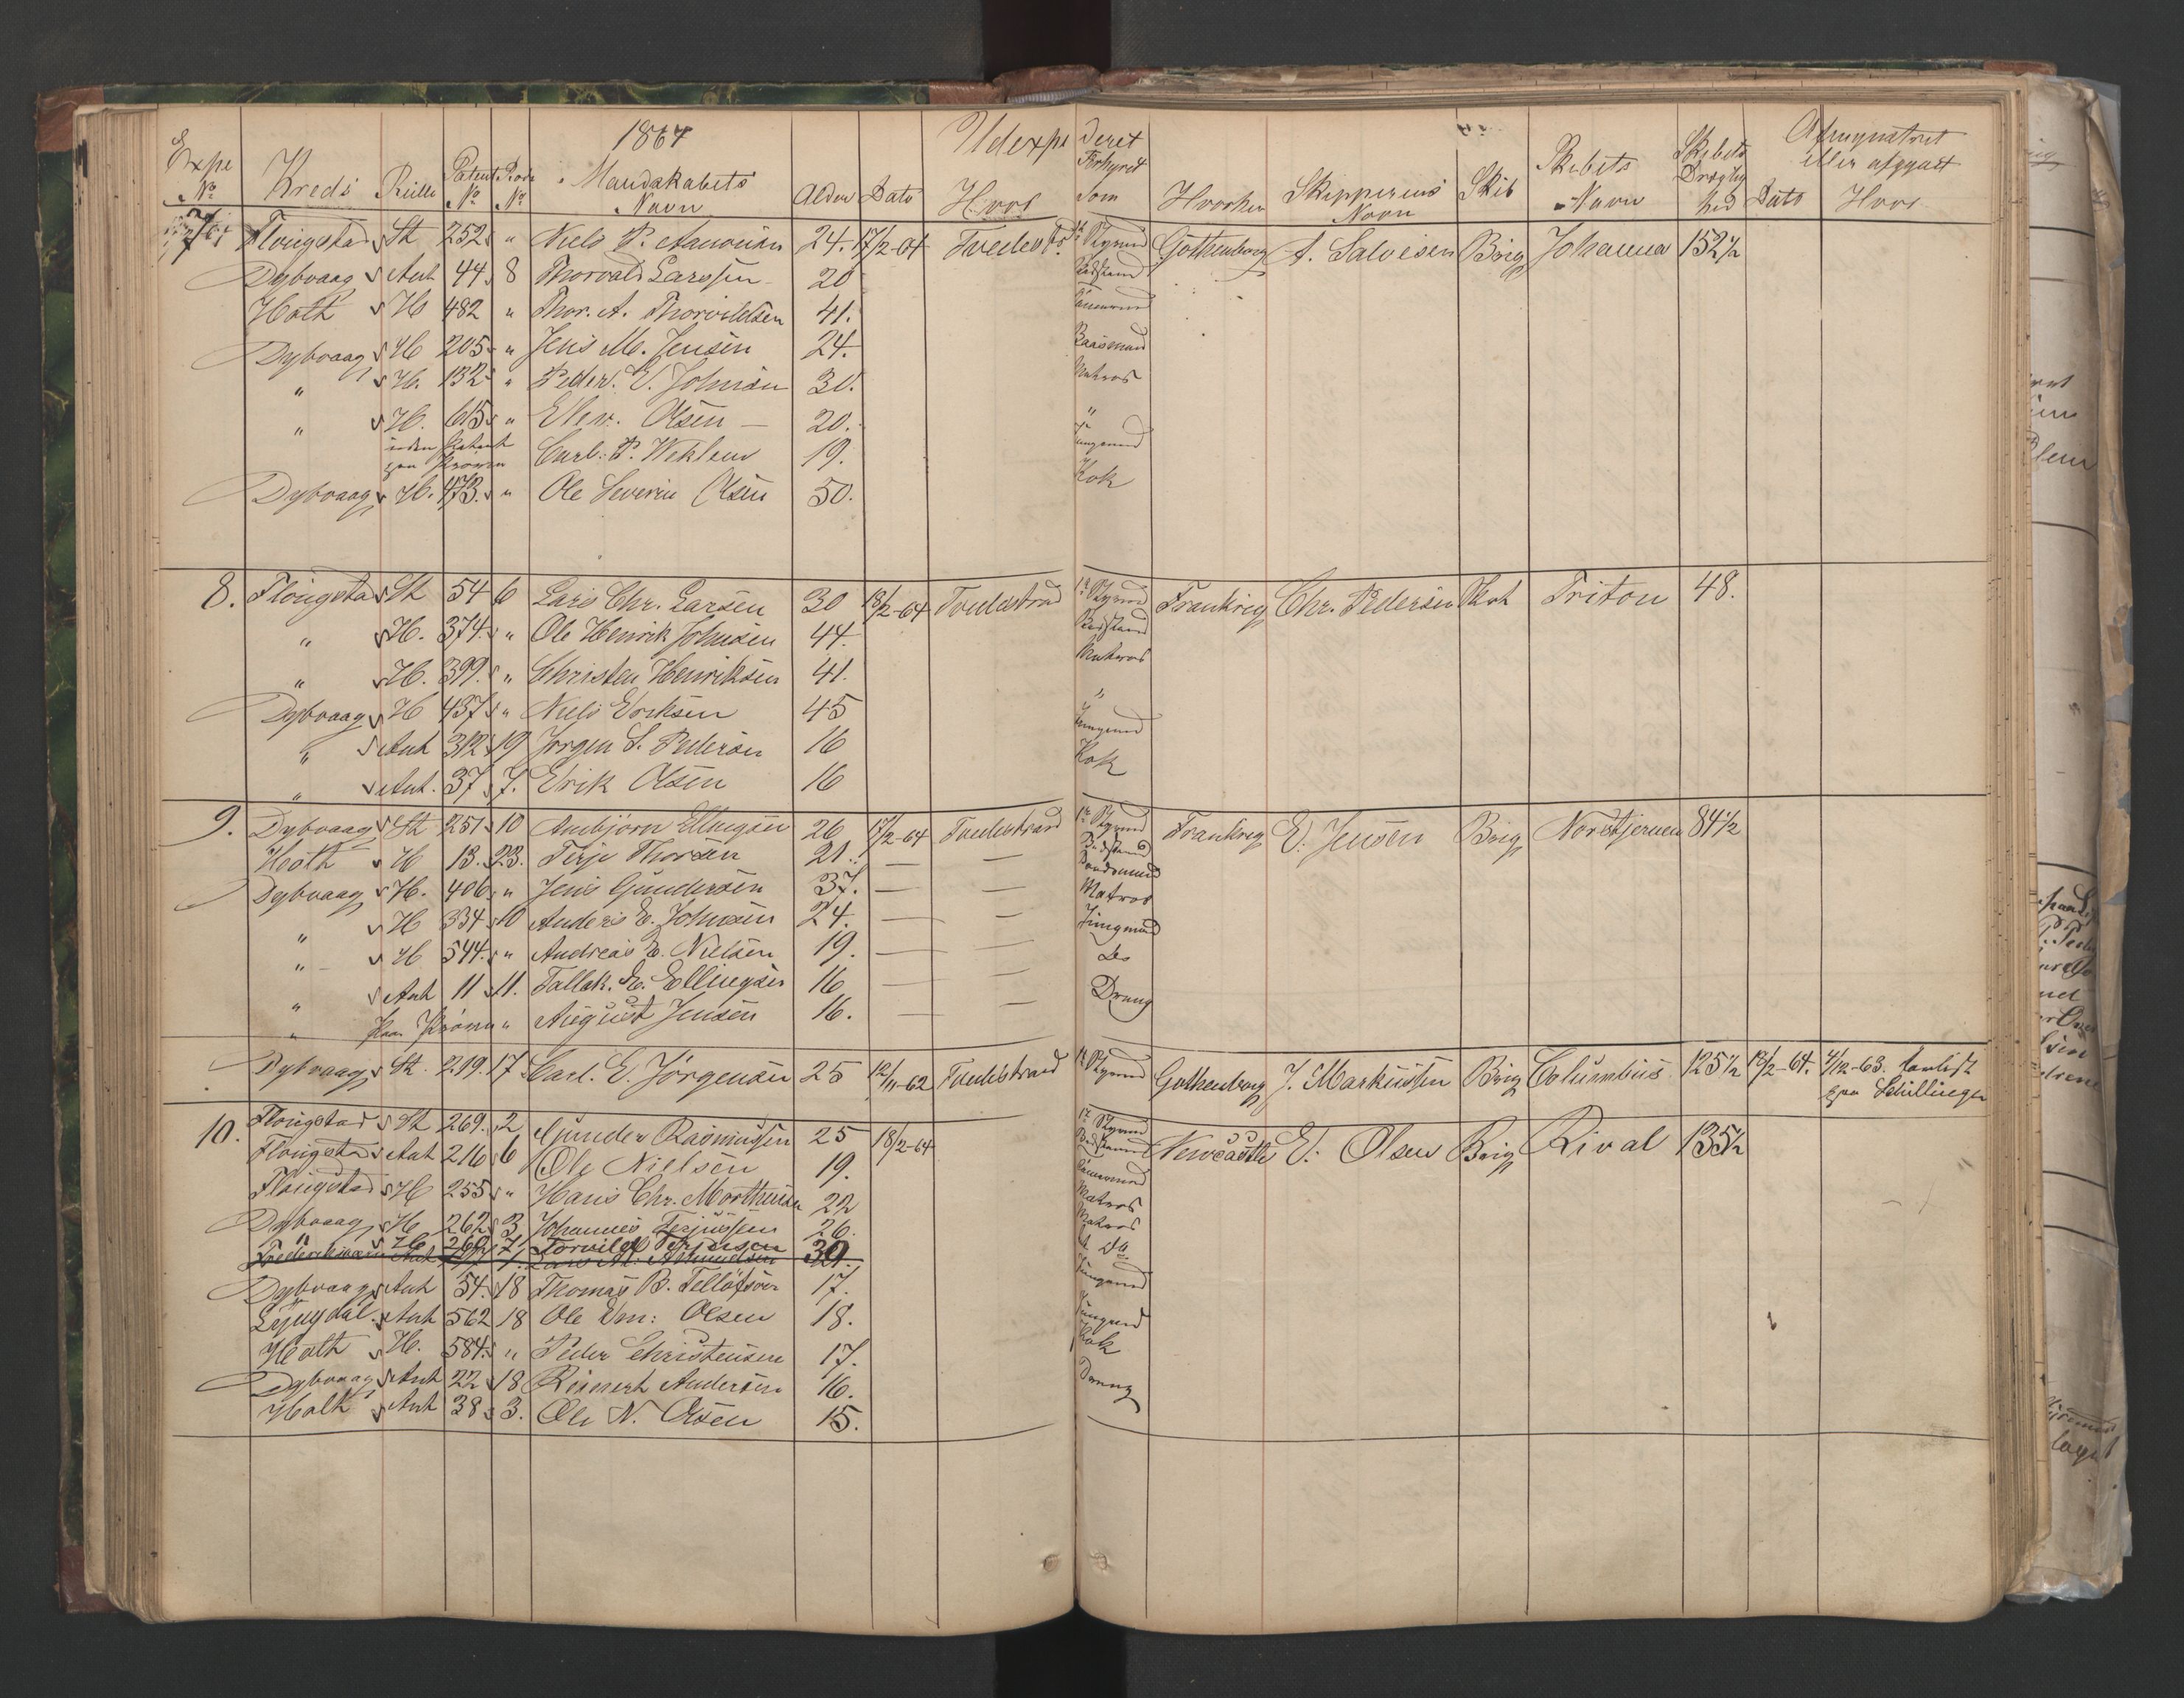 1864 Udexpe deret
Expe No Kreds Rulle Patent No Rode No Mandskabets Navn Alder Dato Hvor Forhyret som Hvorhen Skipperens Navn Skib Skibets Navn Skibets Drægtighed Afmynstret eller afgaaet Dato Hvor
7 Flougstad St 252 " Niels P. Aanonsen 24. 17/2-64 Tvedestrd 1e Styrmd Gothenborg A. Salvesen Brig Johanna 152 1/2
Dybvaag Ant 44 8 Thorvald Larssen 20 Baadsmand
Holt H 482 " Thor. A. Thorvildsen 41. Tømmermd
Dybvaag H 205 " Jens M. Jensen 24. Raasmand
" H. 132 " Peder. E. Johnsen 30. Matros
" H. 615 " Elev. Olsen 20. "
uden Patent paa Prøven Carl. P. Weklem 19. Jungmand
Dybvaag H. 473. " Ole Severin Olsen 50. Kok
8. Flougsta St 54 6 Lars Chr. Larsen 30 18/2-64 Tvedestrand 1e Styrmd Frankrig Chr. Pedersen Skot Triton 48.
" H. 374. " Ole Henrik Johnsen 44. Baadsmand
" H. 399. " Christen Henriksen 41. Matros
Dybvaag H 437 " Niels Eriksen 45 "
" Ant 312 19 Jørgen S. Pedersen 16 Jungmand
" Ant. 37 7. Erik Olsen 16 Kok
9. Dybvaag St 251 10 Anbjørn Ellingsen 26 17/2-64 Tvedestrand 1e Styrmd Frankrig E. Jensen Brig Nordstjernen 84 1/2
Holt H 13. 23. Terje Thorsen 21. — — Baadsmand
Dybvaag H. 406 " Jens Gundersen 37. — — Tømmermand
" H 334 10 Anders E. Johnsen 24. — — Matros
" H 544. " Andreas E. Nielsen 19. — — Jungmand
" Ant 11 11. Tallak. E. Ellingsen 16 — — Do
" paa Prøven " August Jensen 16. — — Dreng
Dybvaag St. 219. 17 Carl. E. Jørgensen 25 12/11-62 Tvedestrand 1e Styrmd Gothenborg J. Markussen Brig Columbus 125 1/2 13/2-64. 4/12-63. forlist paa Schillingen
10. Flougstad St 269. 2 Gunder Rasmussen 25 18/2-64 1e Styrmd Newcastle E. Olsen Brig Rival 135 1/2
Flougstad Ant 216 6 Ole Nielsen 19. Baadsmand
Flougstad H 255 " Hans Chr. Morthensen 22 Tømmermd
Dybvaag H 262 3 Johannes Terjussen 26. Matros
" H 260 7 Torvild Terjesen 30 Matros
Dybvaag Ant 54. 18 Thomas B. Telløfsen 17. Jungmand
Ant 562 18 Ole Em: Olsen 18. Jungmd
Holt H. 584. " Peder Christensen 17. Kok
Dybvaag Ant 22 18 Reinert Andersen 16. Dreng
Holt Ant 38 3. Ole N. Olsen 15.